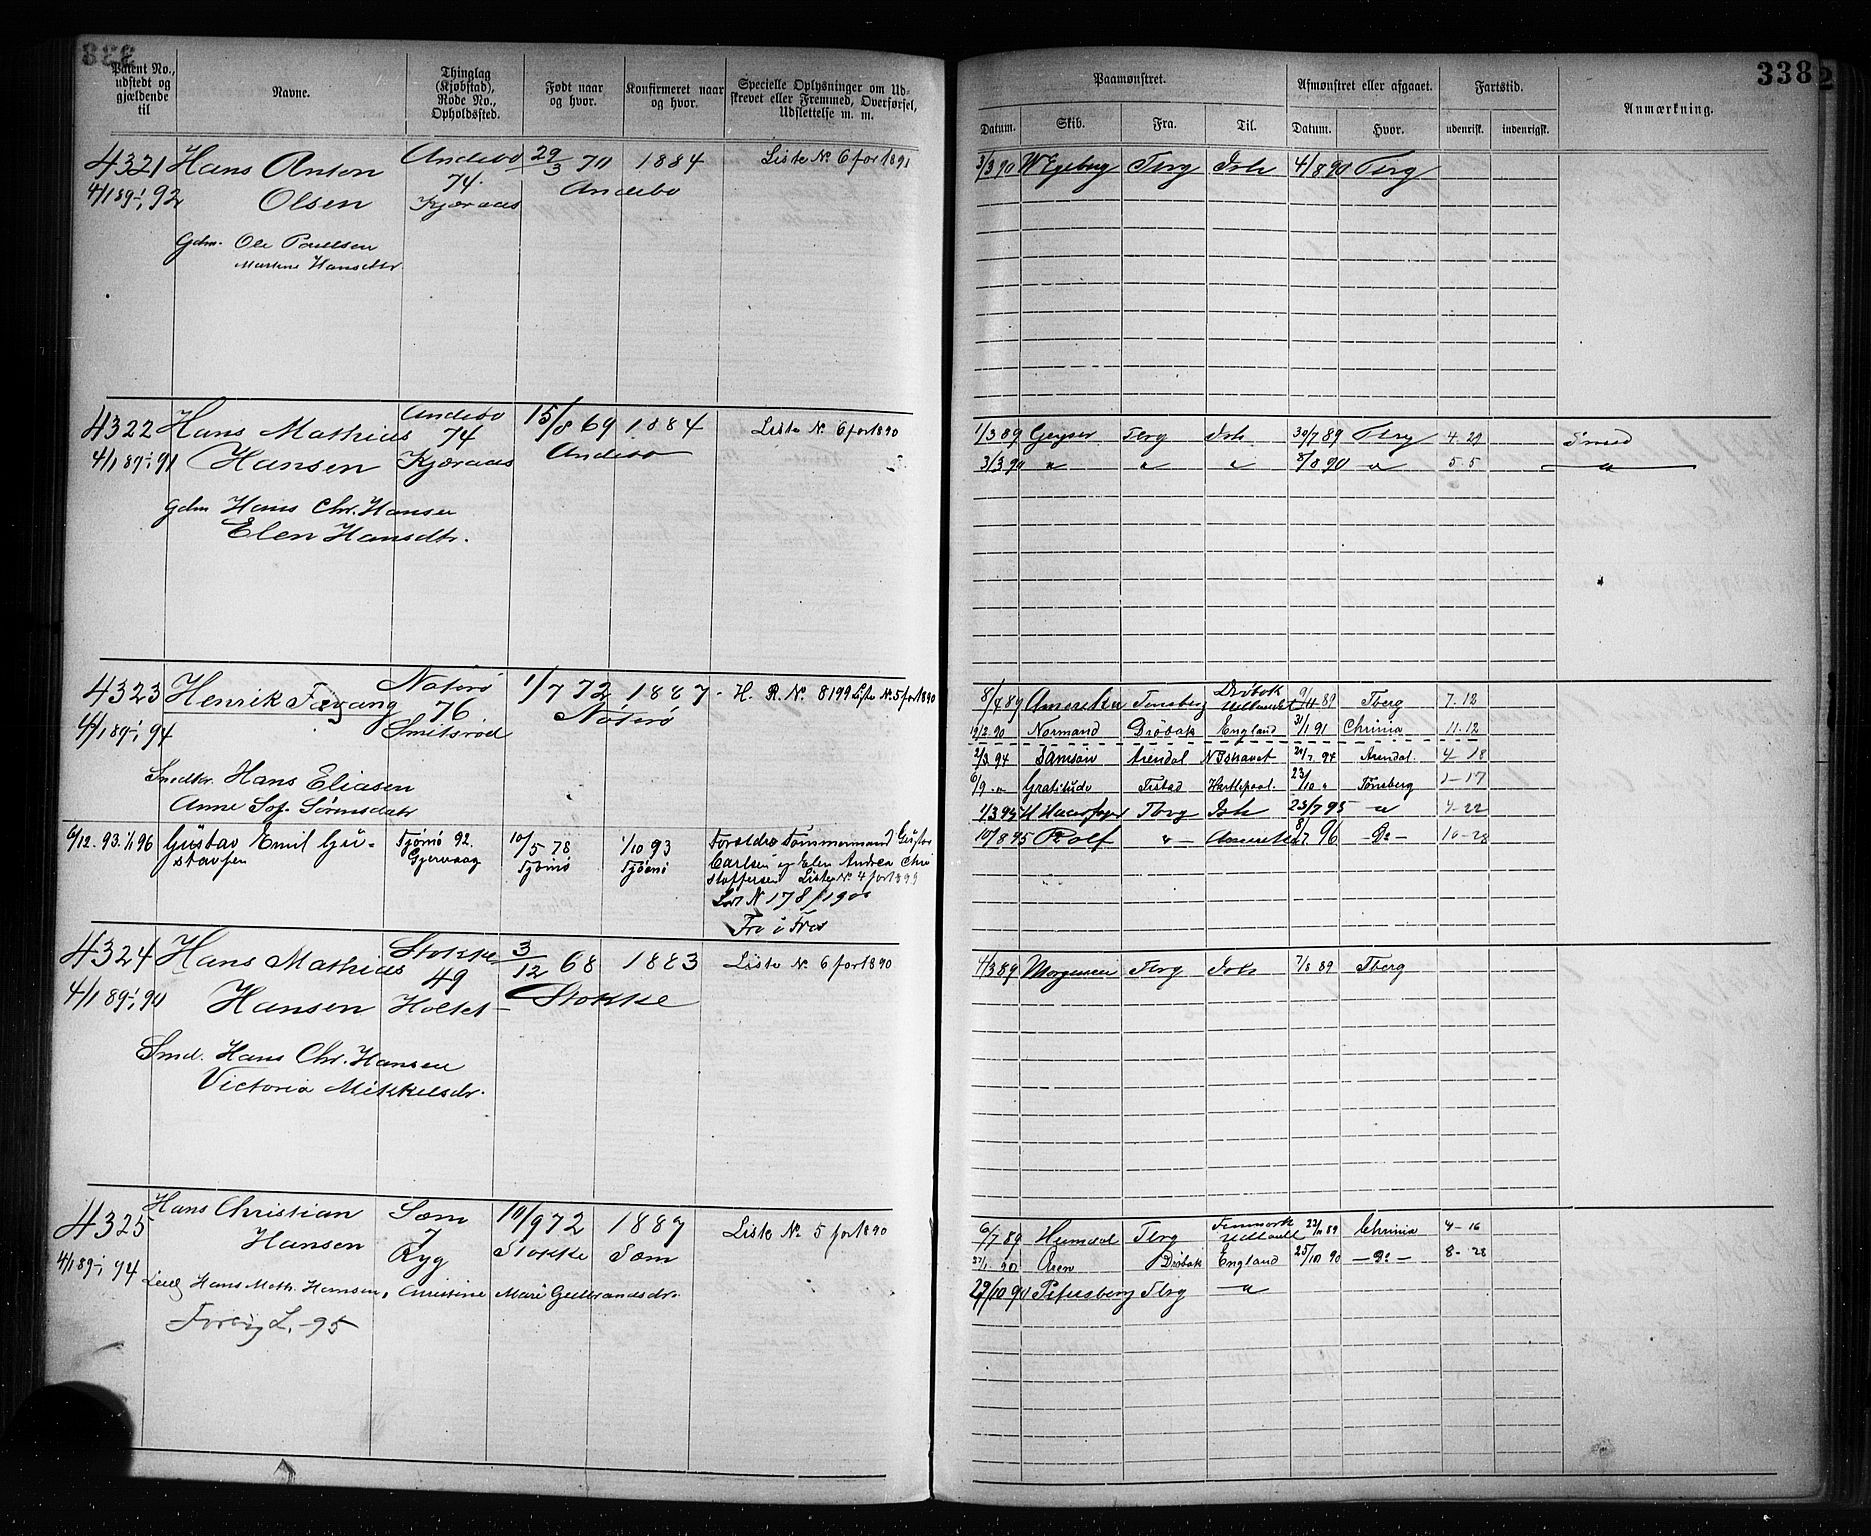 338
Patent No., udstedt og gjældende til
Navne.
Thinglag (Kjøbstad), Rode No., Opholdssted.
Født naar og hvor.
Konfirmeret naar og hvor.
Specielle Oplysninger om Udskrevet eller Fremmed, Overførsel, Udslettelse m. m.
4321 Hans Anton Andebo 29/3 70 1884 Liste No 6 for 1891
4/1 89-1/1 92 Olsen 74. Andebo
Kjæraas
Gdm. Ole Paulsen
Martine Hansdtr.
4322 Hans Mathias Andebo 15/8 69 1884 Liste No 6 for 1890
4/1 89-1/1 91 Hansen 74 Andebo
Kjæraas
Gdm Hans Chr. Hansen
Elen Hansdtr.
4323 Henrik Nøterø 1/7 72 1887 - H. R. No. 8199 Liste No. 5 for 1890
4/1 89-1/1 94 76 Nøterø
Smidsrød
Smedkr. Hans Eliasen
Anne Sof. Sørensdatr
6/12. 93. 1/1 96 Gustav Emil Gu- Tjømø 92. 10/5 78 1/10 93 Forældre Tømmermand Gustav
stavsen Gjervaag Tjømø Tjømø Carlsen og Elen Andrea Chri
stoffersen Liste No 4 for 1899
N 178/1900
4324 Hans Mathias Stokke 3/12 68 1883 Liste No. 6 for 1890
4/1 89-1/1 90 Hansen 49 Stokke
Holtet
Smd. Hans Chr. Hansen
Victoria Mikkelsdr.
4325 Hans Christian Sæm 10/9 72 1887 Liste No. 5 for 1890
4/1 89-1/1 94 Hansen 7 Stokke Sæm
Ryg
Hans Math. Hansen, Christine Mari Gulbrandsdr.
L. -95
338
Paamønstret.
Afmønstret eller afgaaet.
Fartstid.
Anmærkning.
Datum. Skib. Fra. Til. Datum. Hvor. udenrigsk. indenrigsk.
3/3 90 W Egeberg Tbrg Ish 4/8 90 Tbrg
1/3 89 Geyser Tbrg Ish 30/7 89 Tbrg 4-29 Smed
3/3 90 " " " 8/8 90 " 5-5 "
8/4 89 Amerika Tønsberg Drøbak Udlandet 9/11 89 Tberg 7-12
19/2. 90 Normand Drøbak England 31/1 91 Chrinia 11-12
2/3 94 Samson Arendal N Ishavet 20/7 94 Arendal. 4-18
6/9 - " Gratitude Fr.stad Hartlepool. 23/10 " Tønsberg 1-17
1/3 95 H Haarfager Tbrg Ish 23/7 95 " 4-22
10/8 95 Rolf " Amerika 8/7 96 - Do - 10-28
4/3 89 Morgenen Tbrg Ish 7/8 89 Tberg
6/7 89 Heimdal Tbrg Finmark Udlandt 22/11 89 Chrinia 4-16
27/1. 90 Ørn Drøbak England 25/10 90 - Do - 8-28
29/10 90 Petersborg Tbrg "